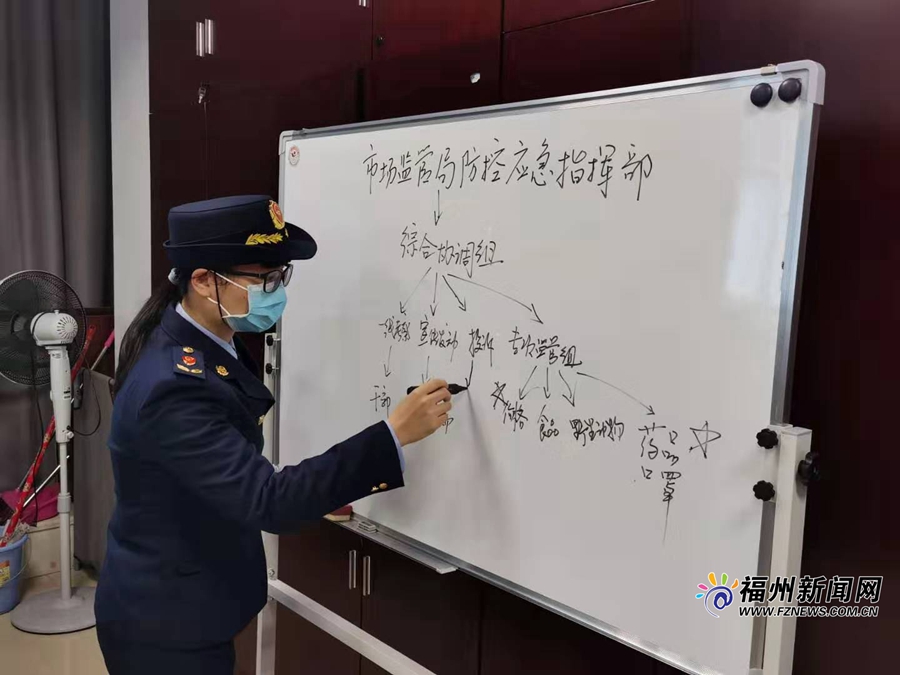 市场监管局防控应急指挥部
综合协调组
宣传发动 投诉 专项监管组
干部
价格 食品 野生动物 药品
口罩
福州新闻网
WWW.FZNEWS.COM.CN